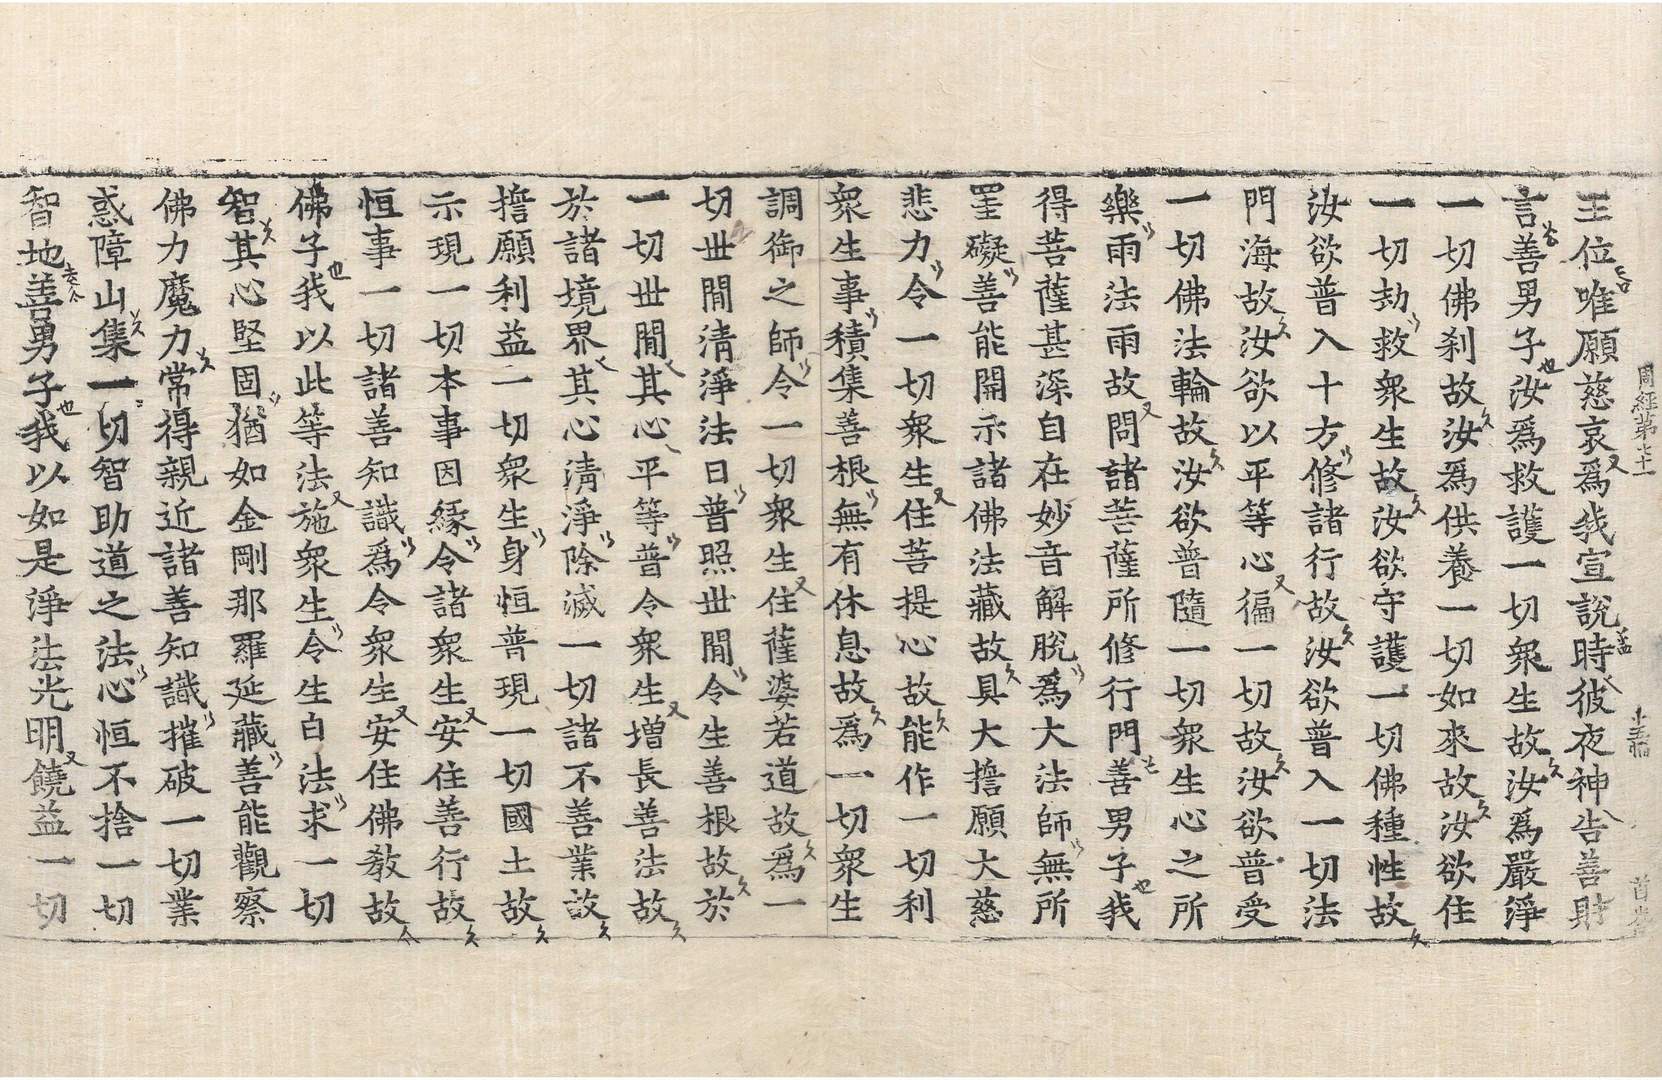 王位唯願慈哀爲我宣說時彼夜神告善財
言善男子汝爲救護一切衆生故汝爲嚴淨
一切佛刹故汝爲供養一切如來故汝欲住
一切劫救衆生故汝欲守護一切佛種性故
汝欲普入十方修諸行故汝欲普入一切法
門海故汝欲以平等心徧一切故汝欲普受
一切佛法輪故汝欲普隨一切衆生心之所
樂雨法雨故問諸菩薩所修行門善男子我
得菩薩甚深自在妙音解脫爲大法師無所
罣礙善能開示諸佛法藏故具大誓願大慈
悲力令一切衆生住菩提心故能作一切利
衆生事積集善根無有休息故爲一切衆生
調御之師令一切衆生住薩婆若道故爲一
切世閒清淨法日普照世閒令生善根故於
一切世閒其心平等普令衆生增長善法故
於諸境界其心清淨除滅一切諸不善業故
誓願利益一切衆生身恒普現一切國土故
示現一切本事因緣令諸衆生安住善行故
恒事一切諸善知識爲令衆生安住佛教故
佛子我以此等法施衆生令生白法求一切
智其心堅固猶如金剛那羅延藏善能觀察
佛力魔力常得親近諸善知識摧破一切業
惑障山集一切智助道之法心恒不捨一切
智地善男子我以如是淨法光明饒益一切